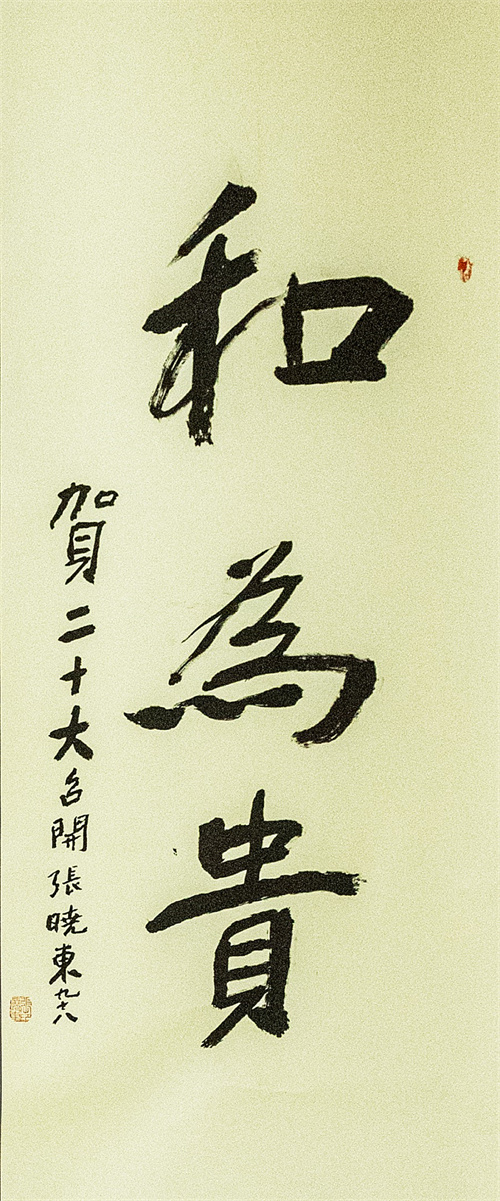 和為貴
賀二十大召開 張曉東 九十八